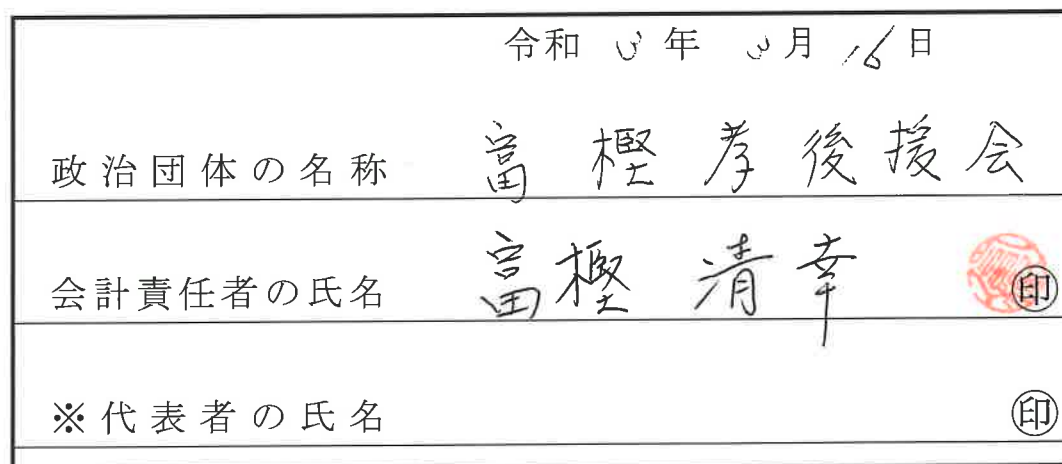 令和 3 年 3 月 16 日
政治団体の名称 富樫孝後援会
会計責任者の氏名 富樫 清幸 ㊞
※代表者の氏名 ㊞